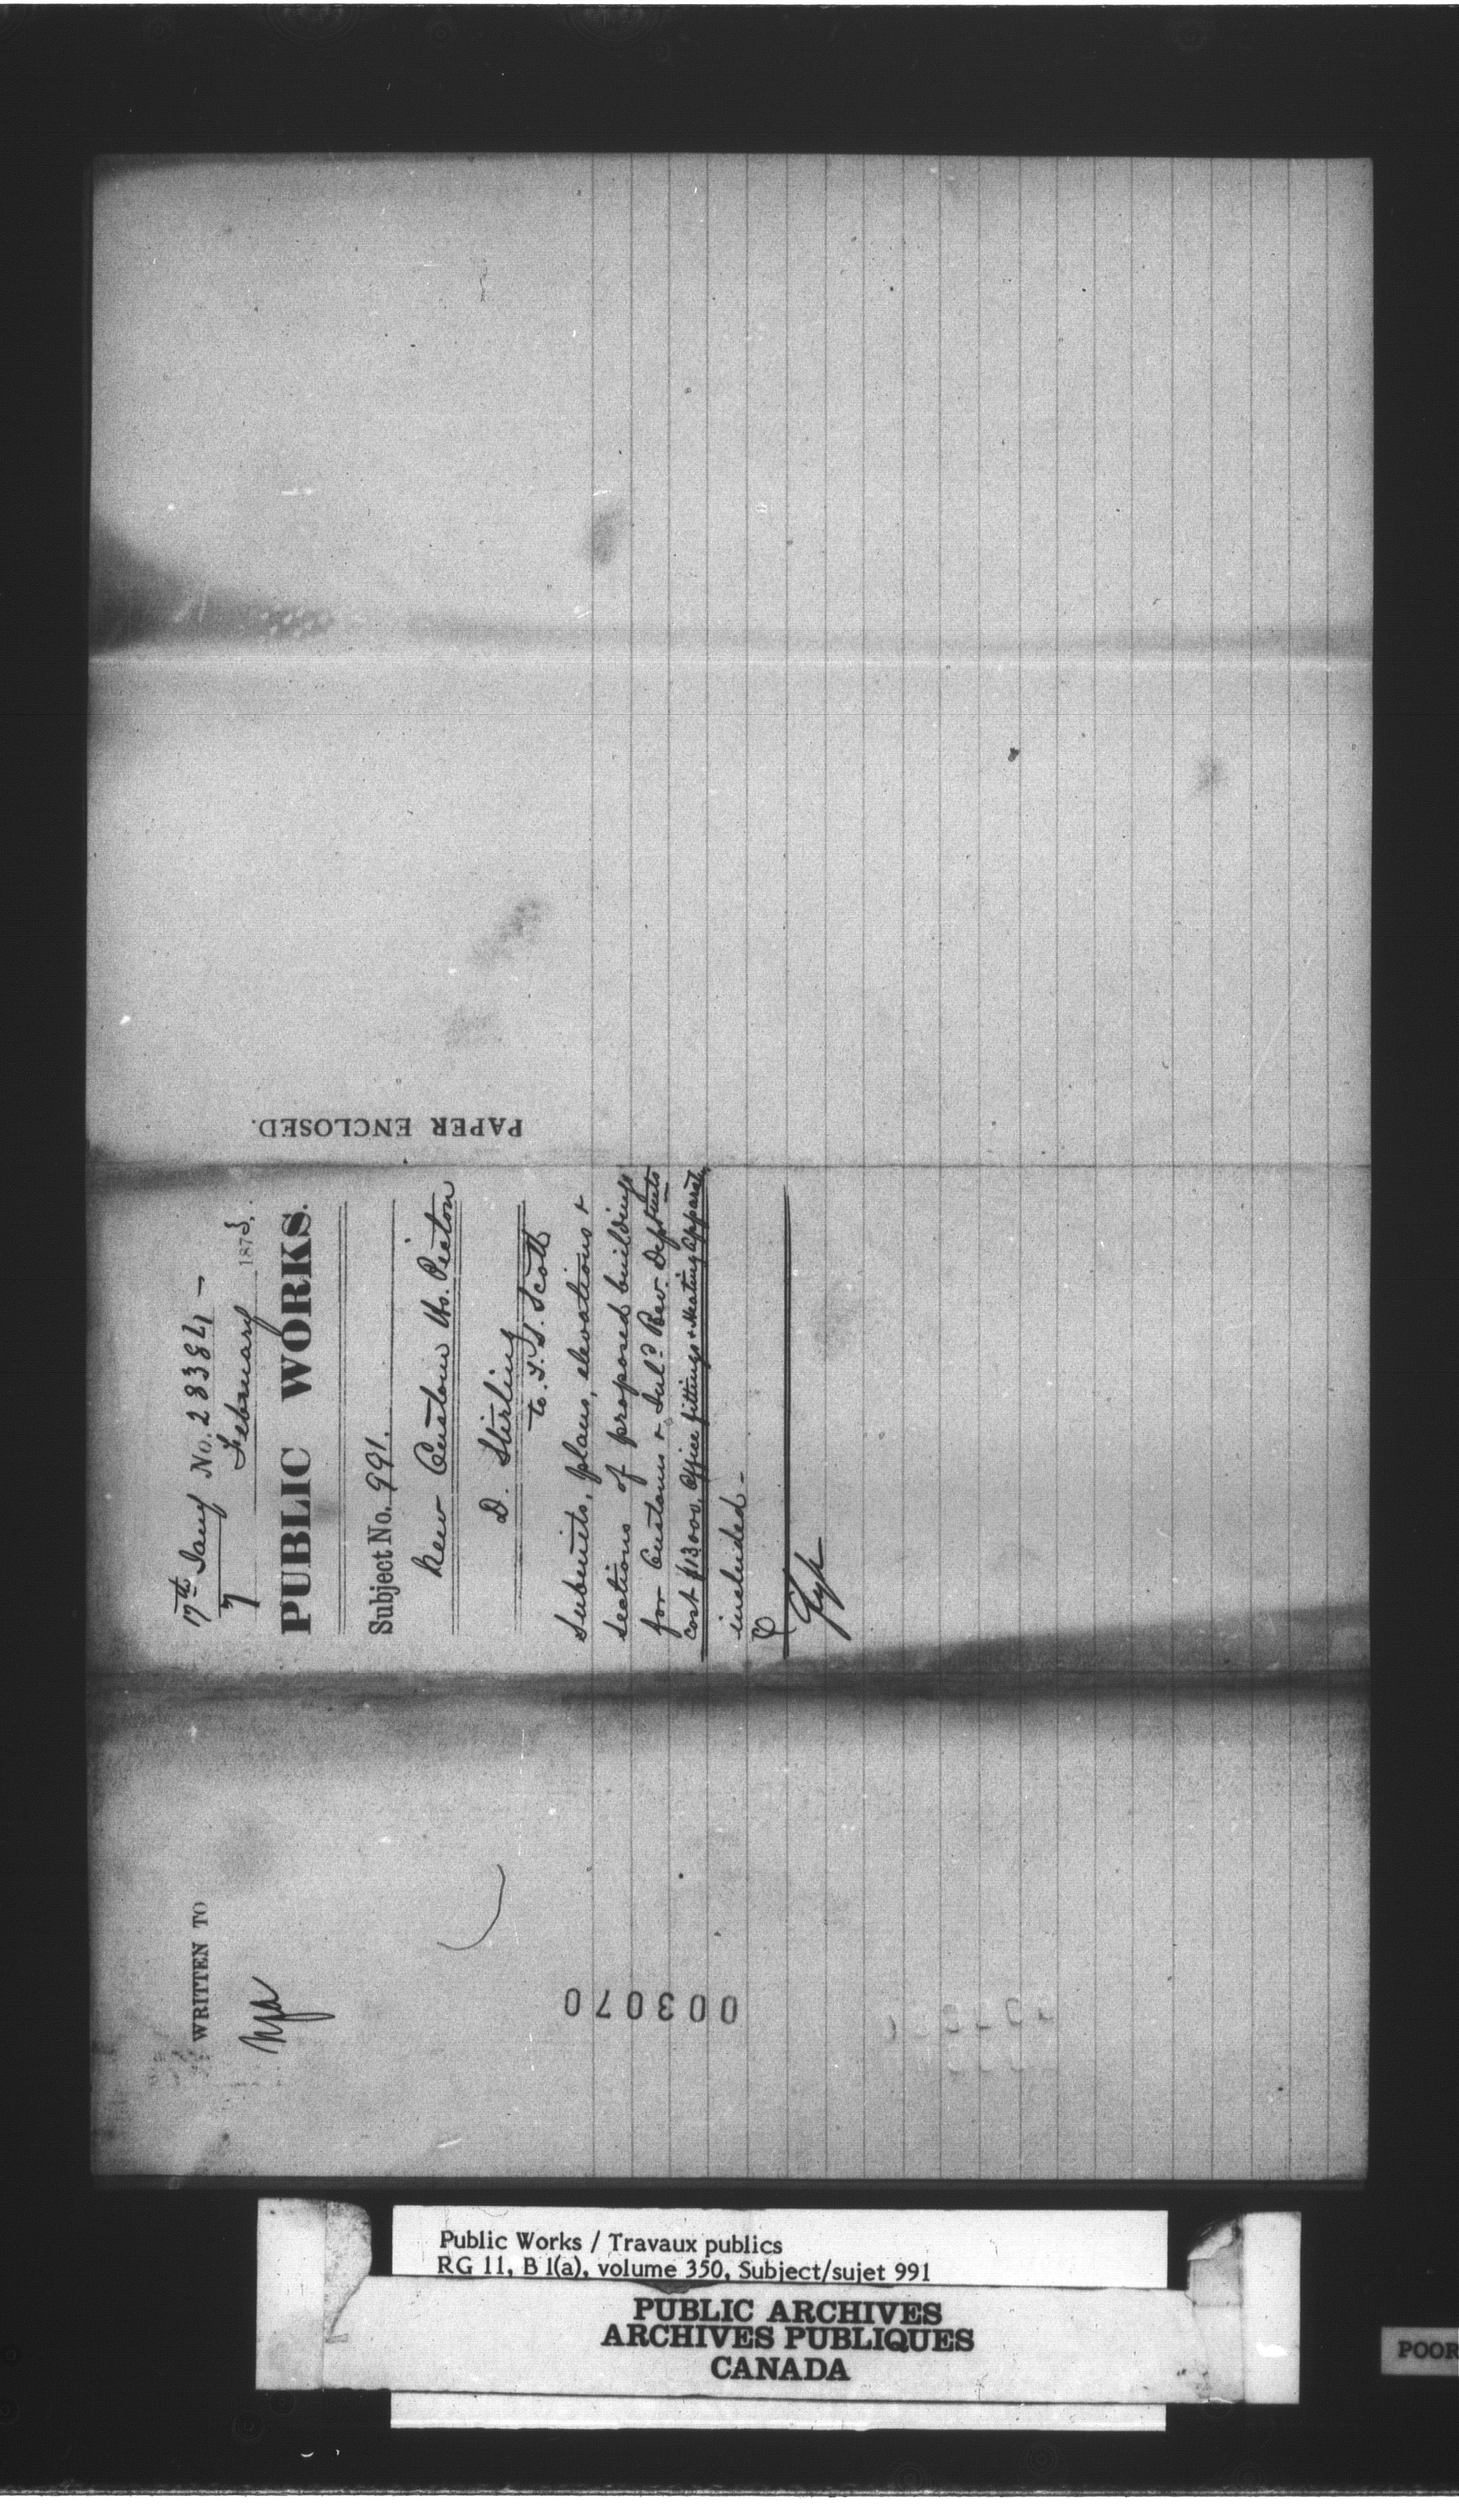 17th Jany No. 28384 –
7 February 1873.
PUBLIC WORKS.
Subject No. 991.
New Custom Ho. Pictou
D. Stirling
to T. S. Scott
Submits, plans, elevations &
sections of proposed buildings
for Customs & Inld Rev. Deptments
cost $13000, Office fittings & Heating Apparatus
included –
PAPER ENCLOSED.
WRITTEN TO
003070
Public Works / Travaux publics
RG 11, B 1(a), volume 350, Subject/sujet 991
PUBLIC ARCHIVES
ARCHIVES PUBLIQUES
CANADA
POOR